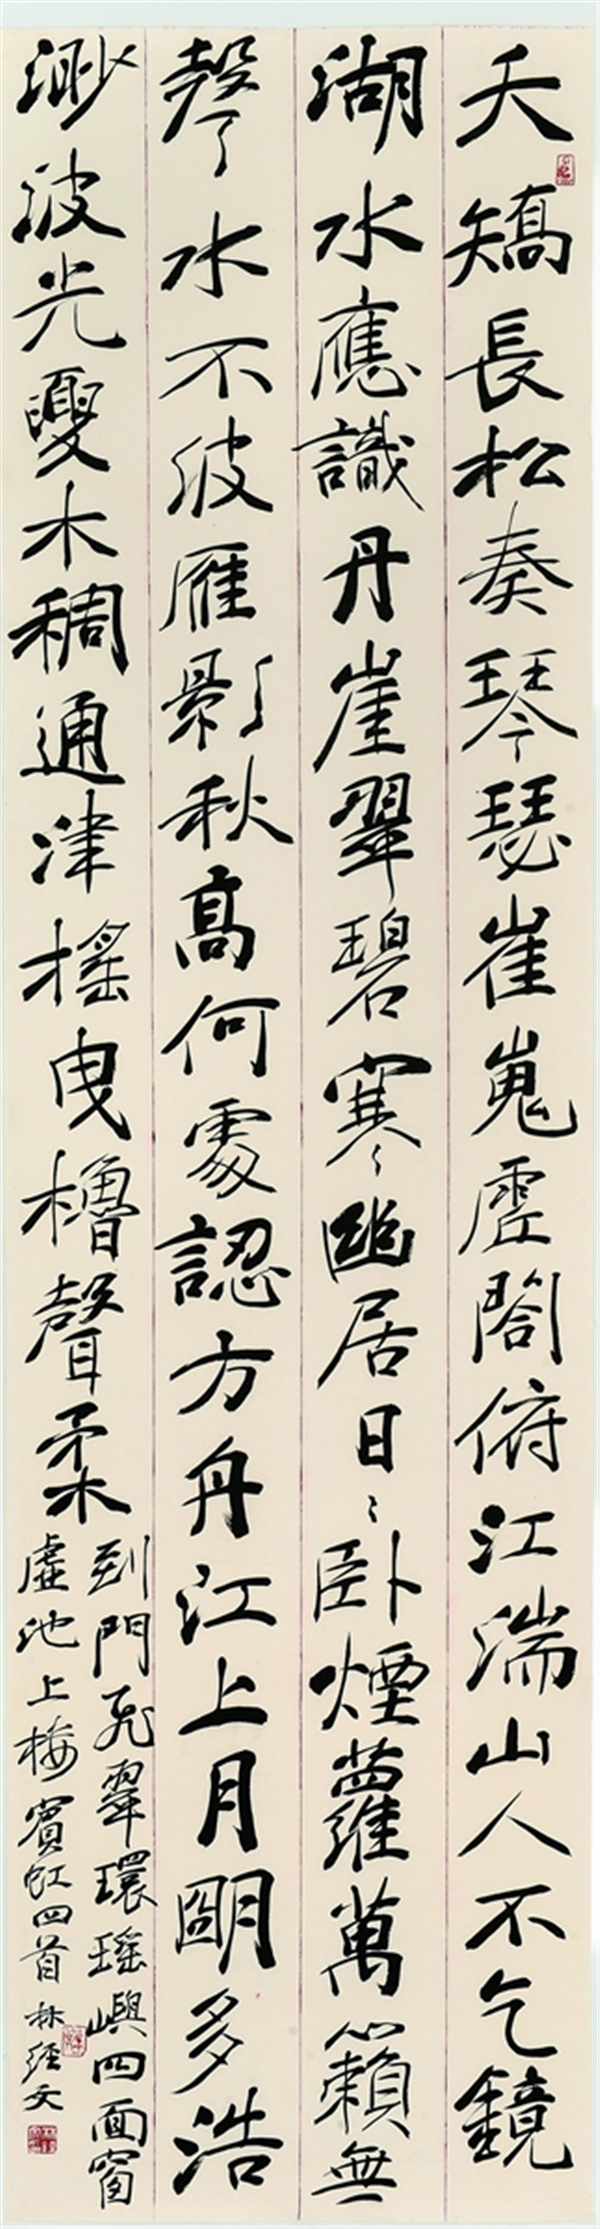 夭矯長松奏琴瑟崔嵬虛閣俯江湍山人不乞鏡
湖水應識丹崖翠碧寒幽居日〻卧煙蘿萬籟無
聲水不波雁影秋高何處認方舟江上月朙多浩
渺波光夐木稠通津搖曳櫓聲柔
到門飛翠環瑤嶼四面窗
虛池上楼賓虹四首 林經文